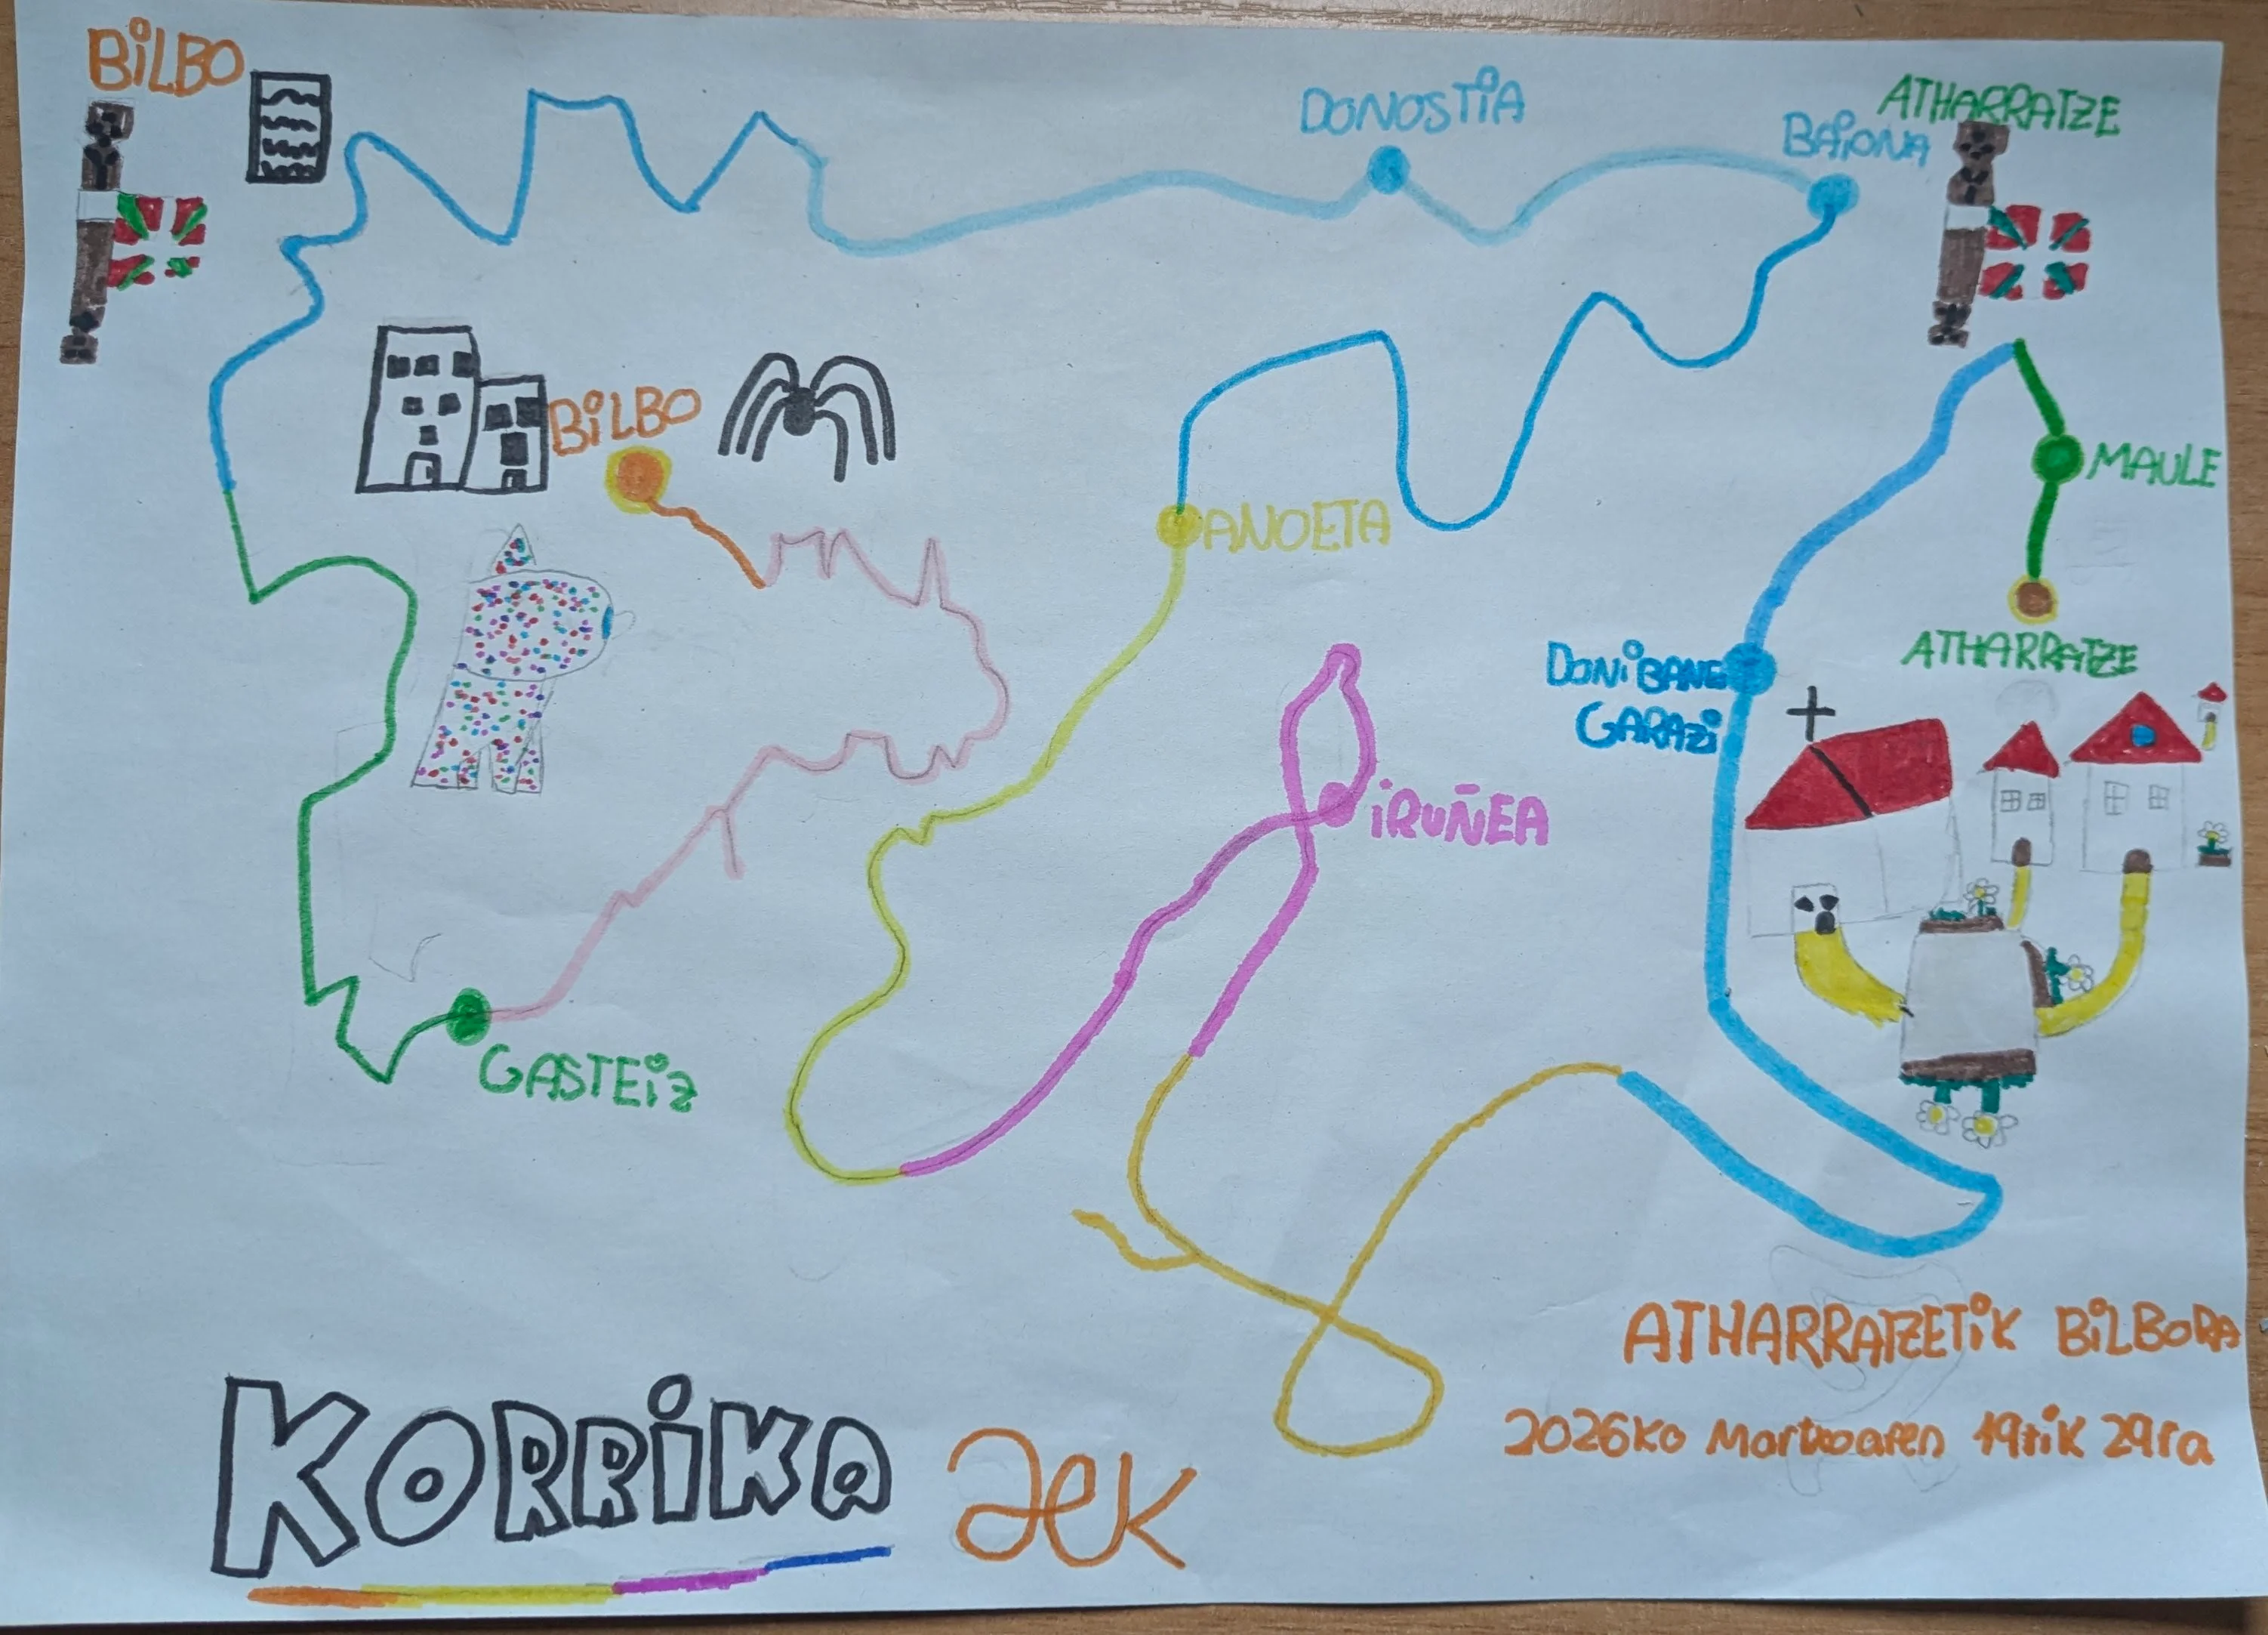 BiLBO
DONOSTiA
BAiONA
ATHARRATZE
BiLBO
MAULE
ANOETA
ATHARRATZE
DONiBANE
GARAZi
iRUÑEA
GASTEiZ
ATHARRATZETiK BiLBORA
2026ko Martxoaren 19tik 29ra
KORRiKA aek